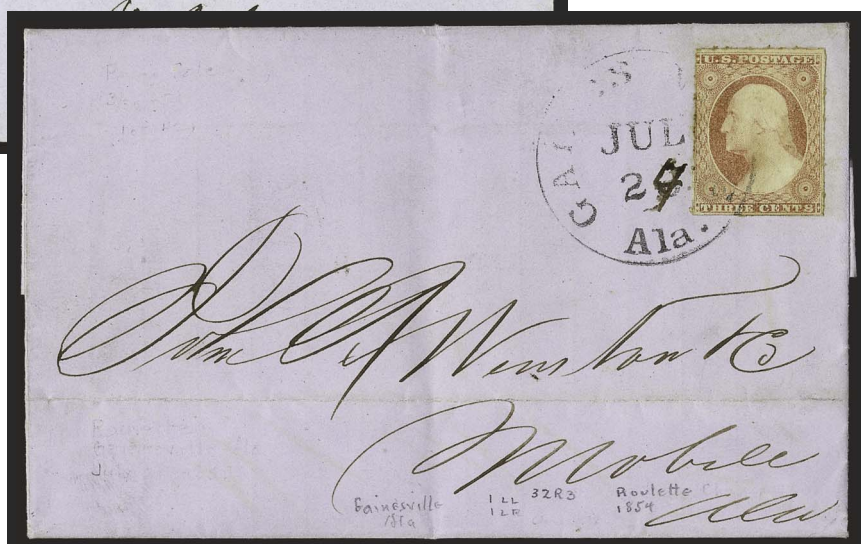 U.S. POSTAGE
THREE CENTS
GAINES
JUL
24
Ala.
John A Winston & Co
Mobile
Ala
Gainesville
Ala
1 LL 32R3
1 LR
Roulette
1854
July